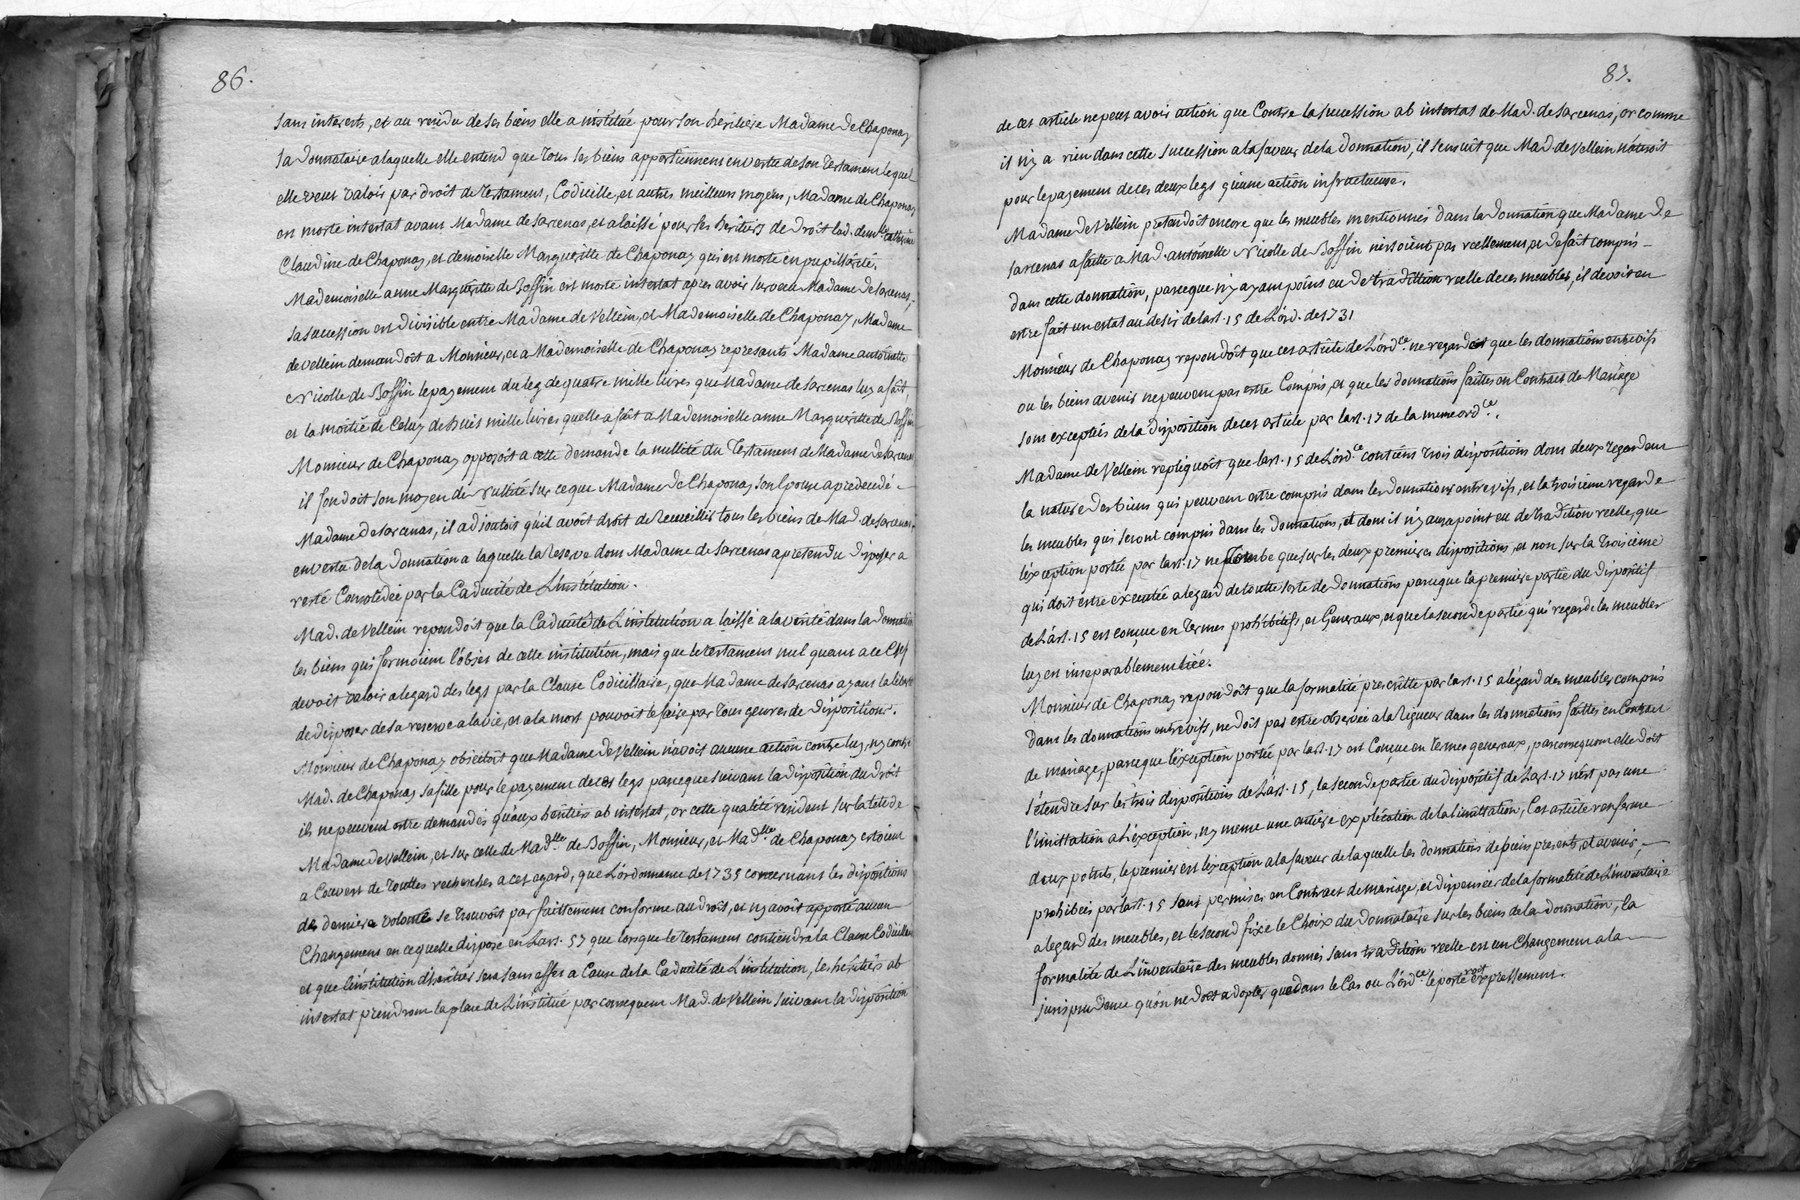 86.
sans interests, et au residu de ses biens elle a institué pour son heritiere Madame de Chaponay
sa donnataire a laquelle elle entend que tous ses biens appartiennent en vertu de son testament lequel
elle veut valoir par droit de testament, Codicille, et autres meilleurs moyens, Madame de Chaponay
est morte intestat avant Madame de Sarcenas, et a laissé pour ses héritiers de droit lad. dem.lle Catherine
Claudine de Chaponay, et demoiselle Margueritte de Chaponay qui est morte en pupillérité.
Mademoiselle anne Margueritte de Boffin est morte intestat apres avoir survecu Madame de Sarcenas,
sa succession est divisible entre Madame de Vellein, et Mademoiselle de Chaponay, Madame
de Vellein demandoit a Monsieur, et a Mademoiselle de Chaponay represants Madame antoinette
Nicolle de Boffin le payement du leg de quatre mille livres que Madame de Sarcenas luy a fait,
et la moitié de Celuy de huit mille livres quelle a fait a Mademoiselle anne Margueritte de Boffin
Monsieur de Chaponay opposoit a cette demande la nullité du Testament de Madame de Sarcenas
il fondoit son moyen de nullité sur ce que Madame de Chaponay son Epouse a predecedé
Madame de Sarcenas, il adjoutoit quil avoit droit de Recueillir tous les biens de Mad. de Sarcenas,
en vertu de la Donnation a laquelle la reserve dont Madame de Sarcenas a pretendu disposer a
resté Consolidée par la Caducité de L'institution.
Mad. de Vellein repondoit que la Caducité de L'institution a laissé a la vérité dans la donnation
les biens qui formoient l'objet de cette institution, mais que le testament nul quant a ce Chef
devoit valoir a legard des legs par la Clause Codicillaire, que Madame de Sarcenas ayant la liberté
de disposer de sa reserve a la vie, et a la mort pouvoit le faire par tous genres de dispositions.
Monsieur de Chaponay objectoit que Madame de Vellein n'avoit aucune action contre luy, ny contre
Mad. de Chaponay sa fille pour le payement de ces legs parceque suivant la disposition du droit
ils ne peuvent etre demandés qu'aux héritiers ab intestat, or cette qualité residant sur la tete de
Madame de Vellein, et sur celle de Mad.lle de Boffin, Monsieur, et Mad.lle de Chaponay estoient
a Couvert de touttes recherches a cet egard, que L'ordonnance de 1735 concernant les dispositions
de derniere volonté se trouvoit parfaittement conforme au droit, et n'y avoit apporté aucun
Changement en ce quelle dispose en Lart. 57 que lorsque le Testament contiendra la Clause Codicillaire
et que l'institution d'héritier sera sans effet a Cause de la Caducité de L'institution, les héritiers ab
intestat prendront la place de L'institué par consequent Mad. de Vellein suivant la disposition
87.
de cet article ne peut avoir action que Contre la succession ab intestat de Mad. de Sarcenas, or comme
il n'y a rien dans cette succession a la faveur de la donnation, il sensuit que Mad de Vellein n'avoit
pour le payement de ces deux legs qu'une action infructueuse.
Madame de Vellein pretendoit encore que les meubles mentionnés dans la donnation que Madame De
Sarcenas a faitte a Mad. antoinette Nicolle de Boffin n'estoient pas reellement, et de fait compris
dans cette donnation, parceque n'y ayant point eu de tradittion reelle de ces meubles, il devoit en
estre fait un estat au desir de lart. 15 de L'ord. de 1731
Monsieur de Chaponay repondoit que cet article de L'ord.ce ne regardoit que les donnations entrevifs
ou les biens avenir ne peuvent pas estre Compris, et que les donnations faittes en Contract de Mariage
sont exceptées de la disposition de cet article par lart. 17 de la meme ord.ce.
Madame de Vellein repliquoit que lart. 15 de L'ord.ce contient trois dispositions dont deux regardent
la nature des biens qui peuvent estre compris dans les donnations entrevifs, et la troisieme regarde
les meubles qui seront compris dans les donnations, et dont il n'y aura point eu de tradition reelle, que
l'exception portée par lart. 17 ne tombe que sur les deux premieres dispositions, et non sur la troisieme
qui doit estre executée a legard de toutte sorte de donnations parceque la premiere partie du dispositif
de L'art. 15 est conçue en termes prohibitifs, et Generaux, et que la seconde partie qui regarde les meubles
luy est inseparablement liée.
Monsieur de Chaponay repondoit que la formalité prescritte par lart. 15 a légard des meubles compris
dans les donnations entrevifs, ne doit pas estre observée a la rigueur dans les donnations faittes en Contract
de mariage, parceque l'exception portée par lart. 17 est Conçue en termes generaux, par consequent elle doit
s'étendre sur les trois dispositions de L'art. 15, la seconde partie du dispositif de L'art. 17 n'est pas une
limittation a L'exception, ny meme une entiere explication de la limittation, Cet article renferme
deux points, le premier est l'exception a la faveur de laquelle les donnations de biens presents, et avenir,
prohibées par lart. 15 sont permises en Contract de mariage, et dispensées de la formalité de L'inventaire
a legard des meubles, et le second fixe le Choix du Donnataire sur les biens de la donnation, la
formalité de L'inventaire des meubles donnés sans tradition reelle est un Changement a la
jurisprudence qu'on ne doit adopter que dans le Cas ou L'ord.ce le porteroit expressement.